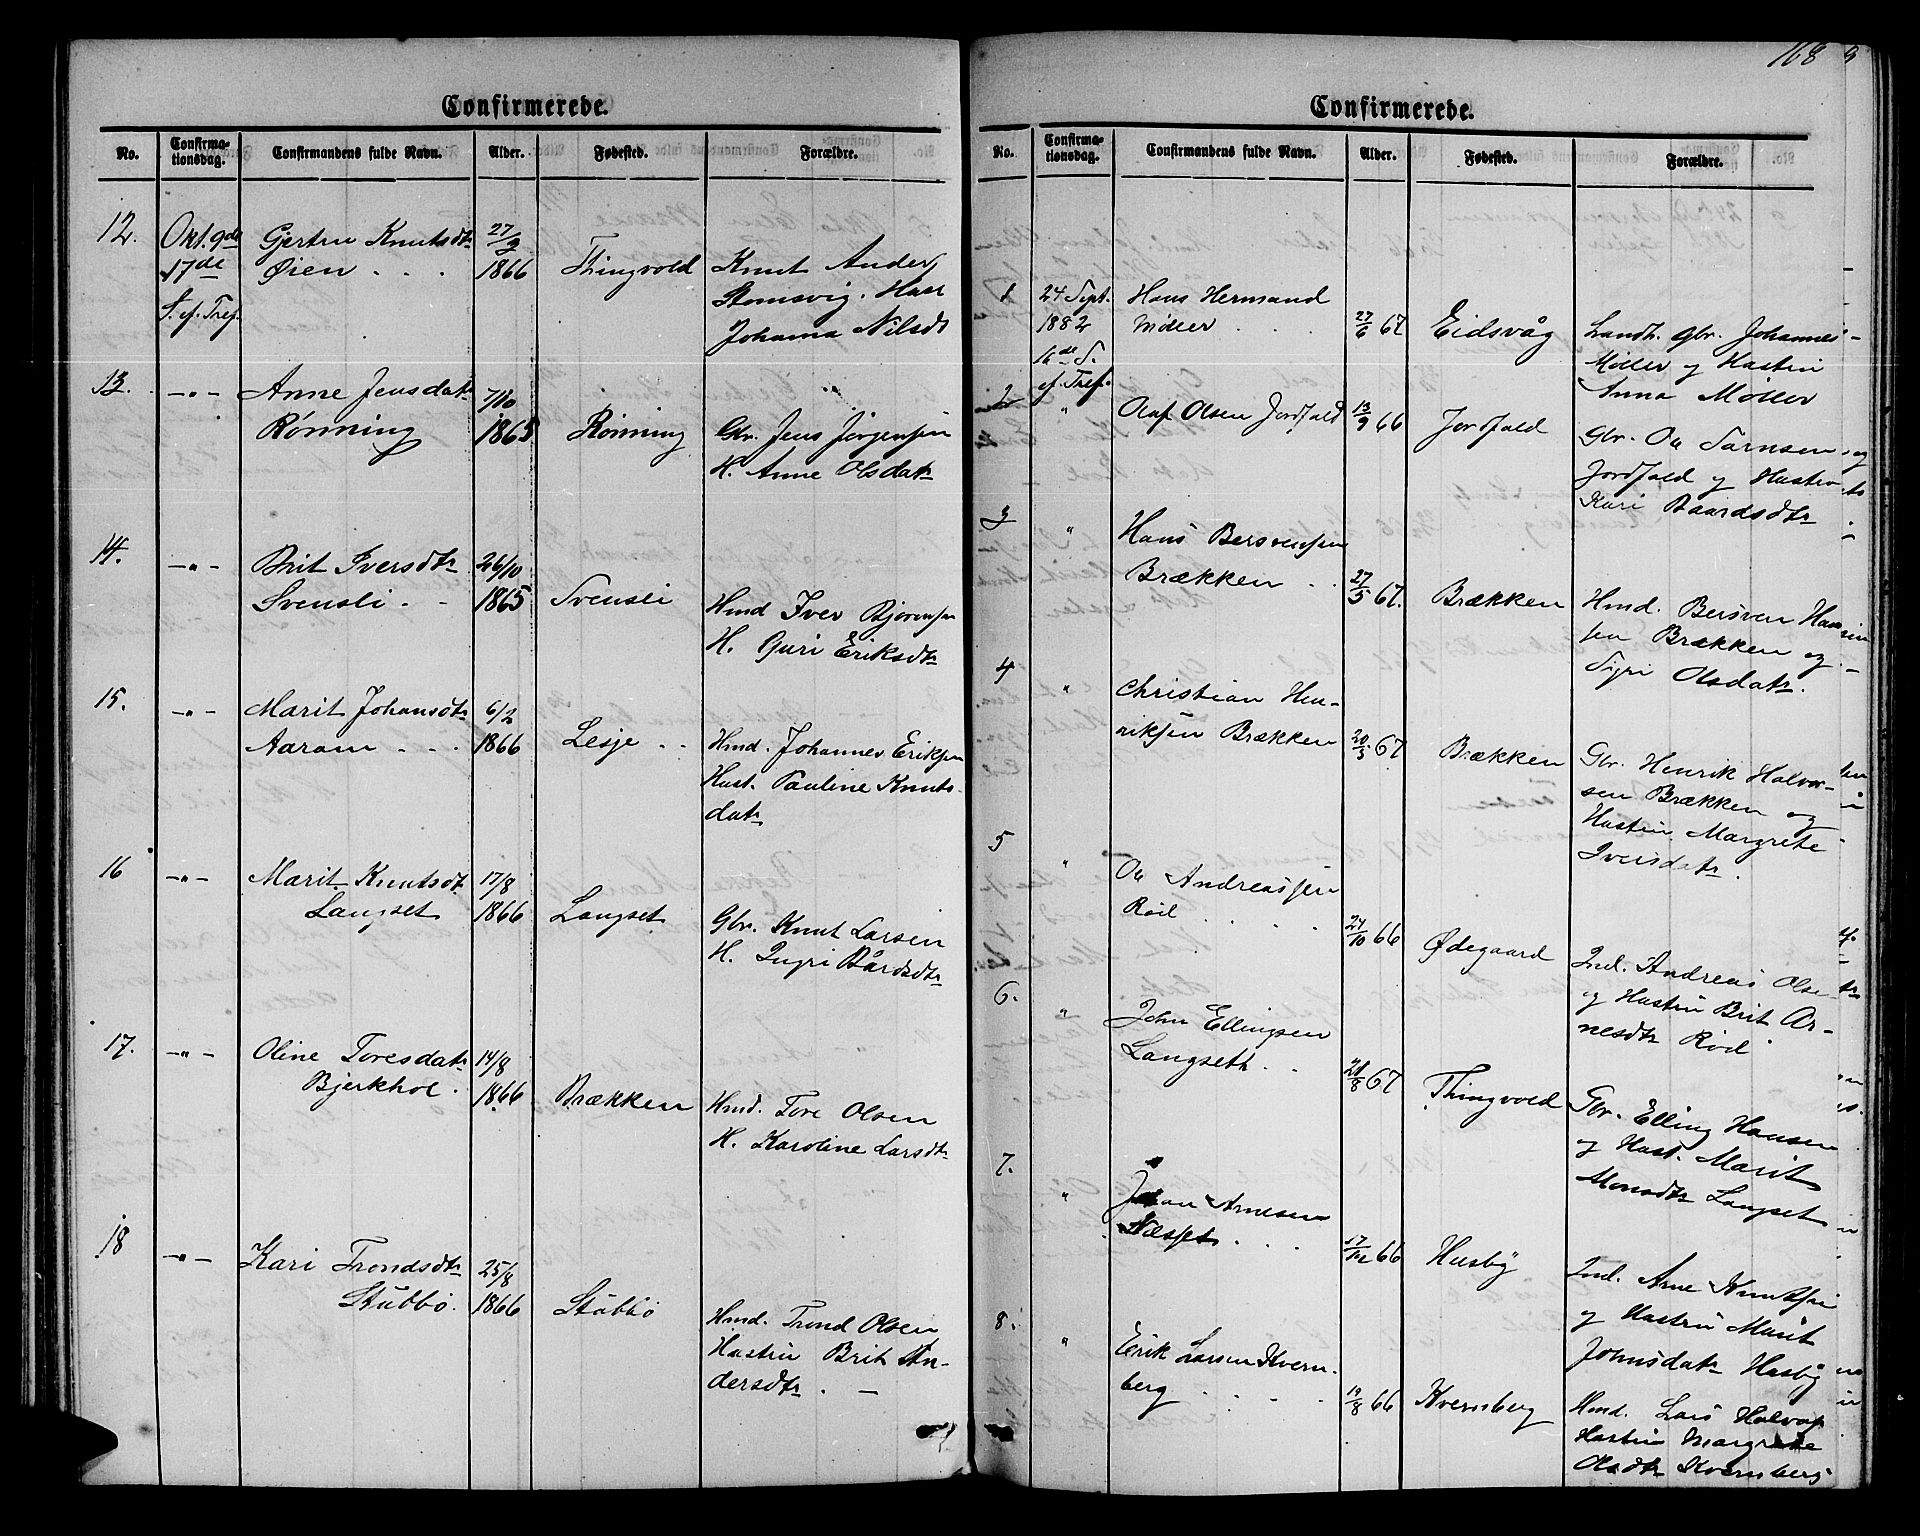 Confirmerede.
No. Confirma-tionsdag. Confirmandens fulde Navn. Alder. Fødested. Forældre.
12. Okt. 9de Gjertru Knutsdtr 27/9
17de Øien . . . 1866 Thingvold Knut Anders
S. ef. Tref. Stomsvig. Hust
Johanna Nilsdt
13. —„— Anne Jensdatr 7/10
Rønning 1865 Rønning Gbr. Jens Jørgensen
H. Anne Olsdatr
14. —„— Brit Iversdtr 26/10
Svensli . - 1865 Svensli Hmd Iver Bjørnsen
H. Guri Eriksdtr
15. —„— Marit Johansdtr 6/2
Aaram . . . 1866 Lesje . . Hmd. Johannes Eriksen
Hust. Pauline Knuts-
datr
16 —„— Marit Knutsdtr 17/8
Langset 1866 Langset Gbr. Knut Larsen
H. Ingri Bårdsdtr
17. —„— Oline Toresdatr 14/8
Bjerkhol . 1866 Brækken Hmd. Tore Olsen
H. Karoline Larsdtr
18 —„— Kari Trondsdtr 25/8
Stubbø. 1866 Stubbø Hmd. Trond Olsen
Hustru Brit An-
dersdtr . —
168
Confirmerede.
No. Confirma-tionsdag. Confirmandens fulde Navn. Alder. Fødested. Forældre.
1 24 Sept. Hans Hermand
1882 Møller . . . 27/6 67 Eidsvåg Landh. Gbr. Johannes
16de S. Møller og Hustru
ef. Tref. Anna Møller
2 „ Olaf Olsen Jordfald 13/9 66 Jordfald Gbr. Ole
Jordfald og Hustru
Kari Baardsdtr
3 „ Hans Bersvensen
Brækken . . 27/5 67. Brækken Hmd. Bersven Han
sen Brækken og
Sigri Olsdatr.
4 „ Christian Hen-
riksen Brækken 20/3 67 Brækken Gbr. Henrik Halvor-
sen Brækken og
Hustru Margrete
Iversdatr.
5 „ Ole Andreassen
Rød . . . 24/10 66 Ødegaard Ind. Andreas Olse
og Hustru Brit Ar-
nesdtr Rød
6. „ John Ellingsen
Langseth . . 21/8 67 Thingvold Gbr. Elling Hansen
og Hust. Marit
Monsdtr Langset
7. „ Johan Arnesen
Næsset . . . 17/12 66 Husby Ind. Arne Knutsen
og Hustru Marit
Johnsdatr Husby
8. „ Erik Larsen Kvern-
berg . . . . 19/8 66 Kvernberg Hmd. Lars Halvors
Hustru Margrete
Olsdtr Kvernberg